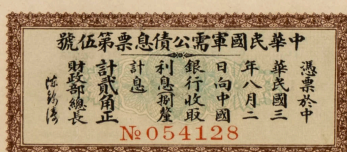 中華民國軍需公債息票第伍號
憑票於中
華民國三
年八月二
日向中國
銀行收取
利息捌釐
計息
計貳角正
財政部總長
陳錦濤
№054128